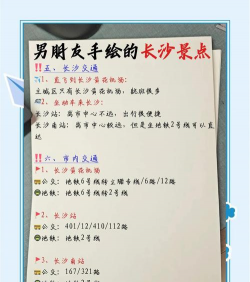 男朋友手绘的长沙景点
‼️五、长沙交通
1、直飞到长沙黄花机场:
主城区只有长沙黄花机场,航班很多
2、坐动车来长沙:
长沙站:离市中心不远,出行很便捷
长沙南站:离市中心较远,但是坐地铁2号线可以直
达
‼️六、市内交通
1、长沙黄花机场
公交:地铁6号线转立珊专线/6路/12路
地铁:地铁6号线
2、长沙站
公交:401/12/410/112路
地铁:地铁2号线
3、长沙南站
公交:167/321路